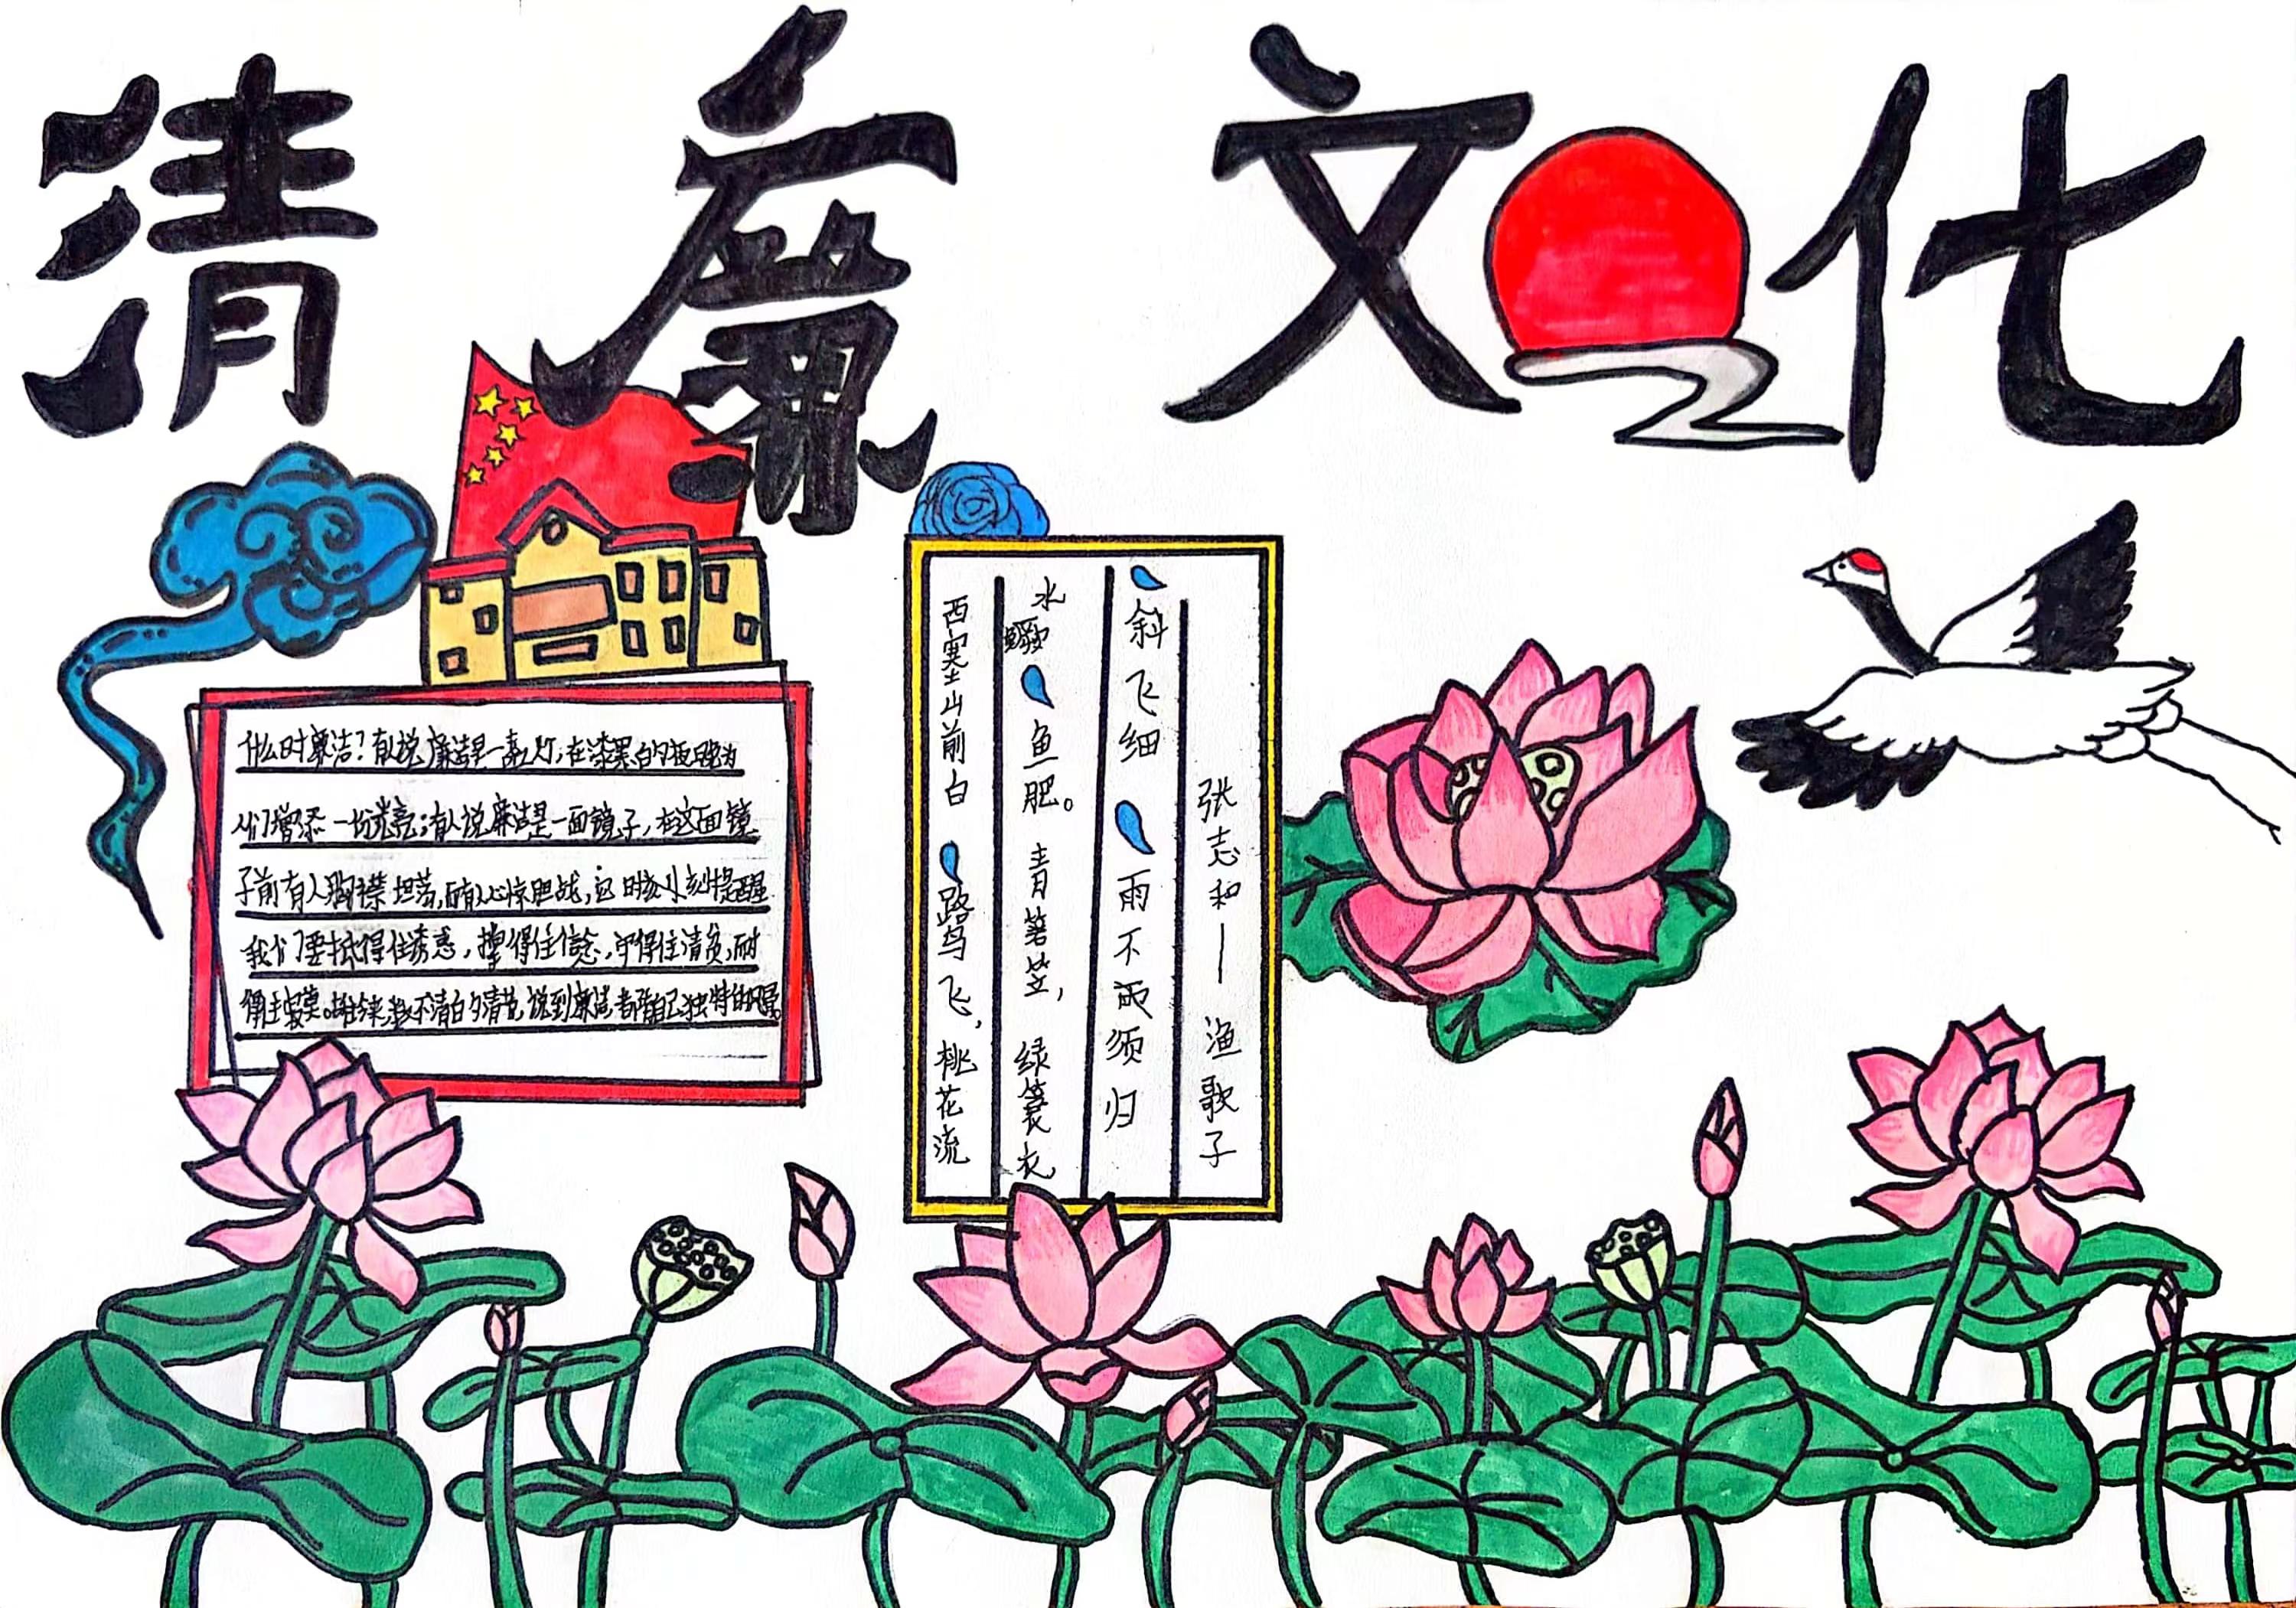 清廉文化
什么时廉洁?有人说廉洁是一盏灯,在漆黑的夜晚为
人们增添一份光亮;有人说廉洁是一面镜子,在这面镜
子前有人胸襟坦荡,而有人心惊胆战,它时刻刻提醒
我们要抵得住诱惑,撑得住信念,守得住清贫,耐
得住寂寞。说到廉洁,都有自己独特的风景。
西塞山前白鹭飞,桃花流
水鳜鱼肥。青箬笠,绿簑衣
斜飞细雨不须归
张志和——渔歌子